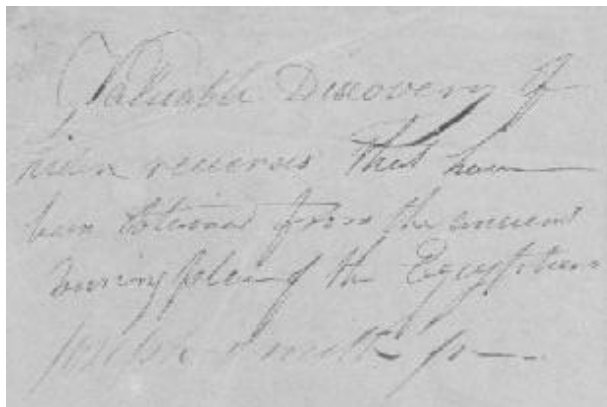 Valuable Discovery of
hiden reccords that have
been obtained from the ancient
buring place of the Egyptians
Joseph Smith Jr